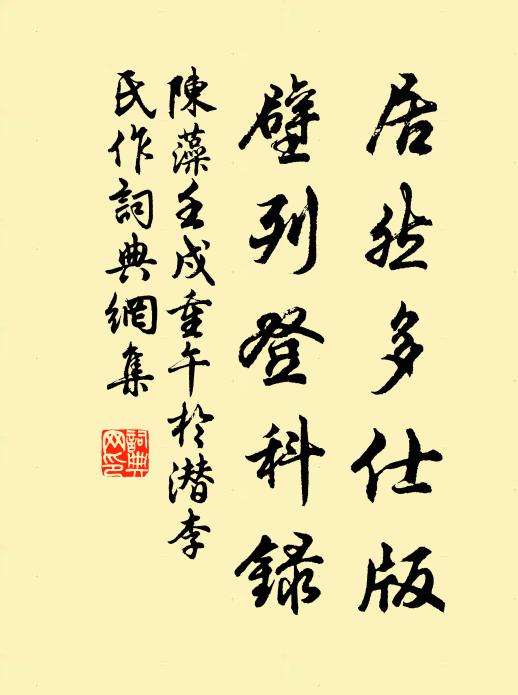 居然多仕版
壁列登科錄
陳藻壬戌重午於潛李
氏作詞典網集
詞典網印